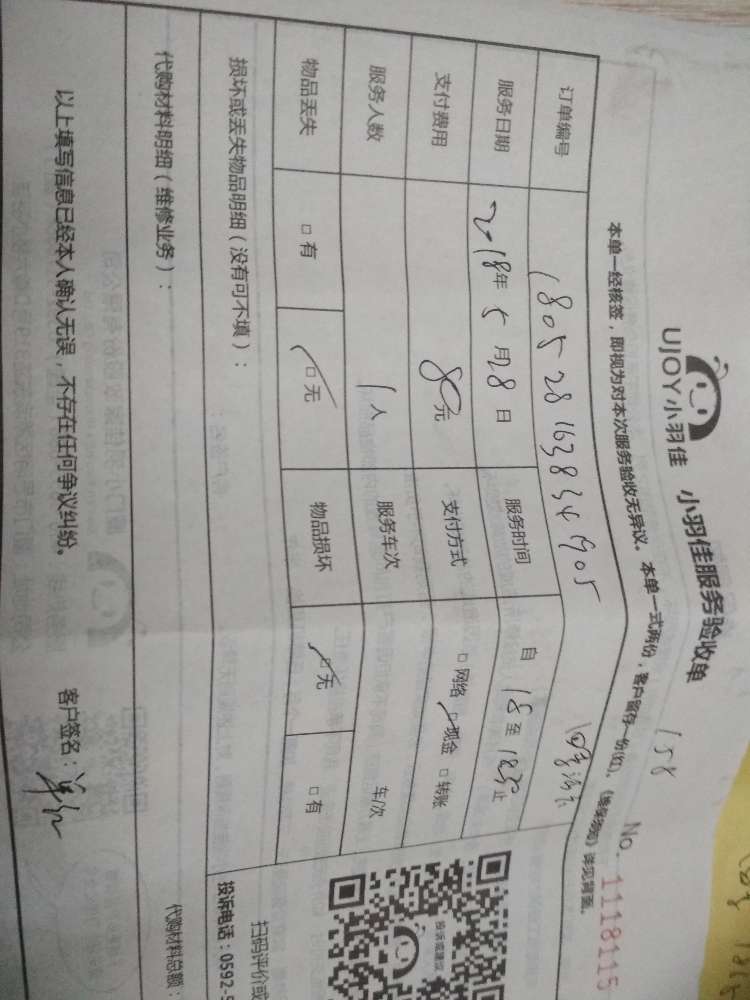 UJOY小羽佳 小羽佳服务验收单
158
No. 1118115
本单一经核签，即视为对本次服务验收无异议。本单一式两份，客户留存一份(红)，《维保须知》详见背面。
订单编号 180528163834905
服务日期 2018年5月28日 服务时间 自 18 至 1830 止
支付费用 80元 支付方式 □网络 ☑现金 □转账
服务人数 1人 服务车次 车/次
物品丢失 □有 ☑无 物品损坏 ☑无 □有
损坏或丢失物品明细（没有可不填）：
扫码评价或
投诉或建议
投诉电话：0592-5
代购材料明细（维修业务）：
代购材料总额：
以上填写信息已经本人确认无误，不存在任何争议纠纷。 客户签名：